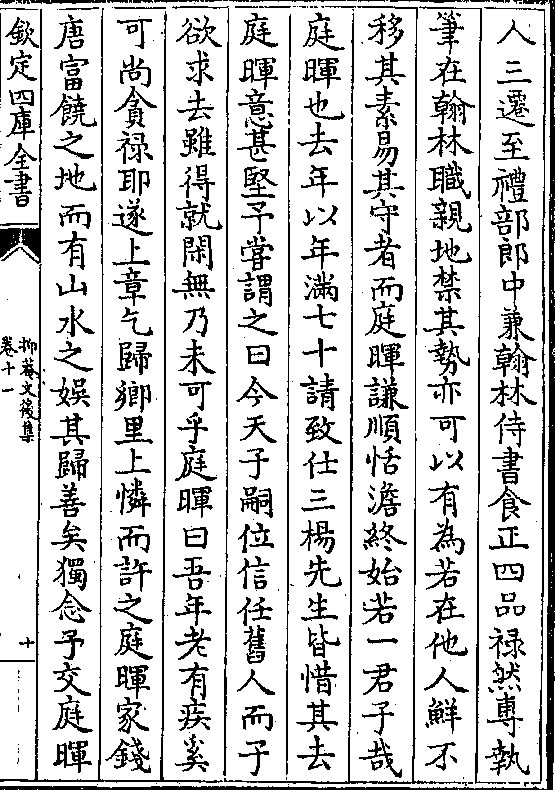 人三遷至禮部郎中兼翰林侍書食正四品禄然專執
筆在翰林職親地禁其勢亦可以有為若在他人鮮不
移其素易其守者而庭暉謙順恬澹終始若一君子哉
庭暉也去年以年滿七十請致仕三楊先生皆惜其去
庭暉意甚堅予嘗謂之曰今天子嗣位信任舊人而子
欲求去雖得就閑無乃未可乎庭暉曰吾年老有疾奚
可尚貪禄耶遂上章乞歸鄉里上憐而許之庭暉家錢
唐富饒之地而有山水之娱其歸善矣獨念予交庭暉
欽定四庫全書
抑菴文後集
卷十一
十